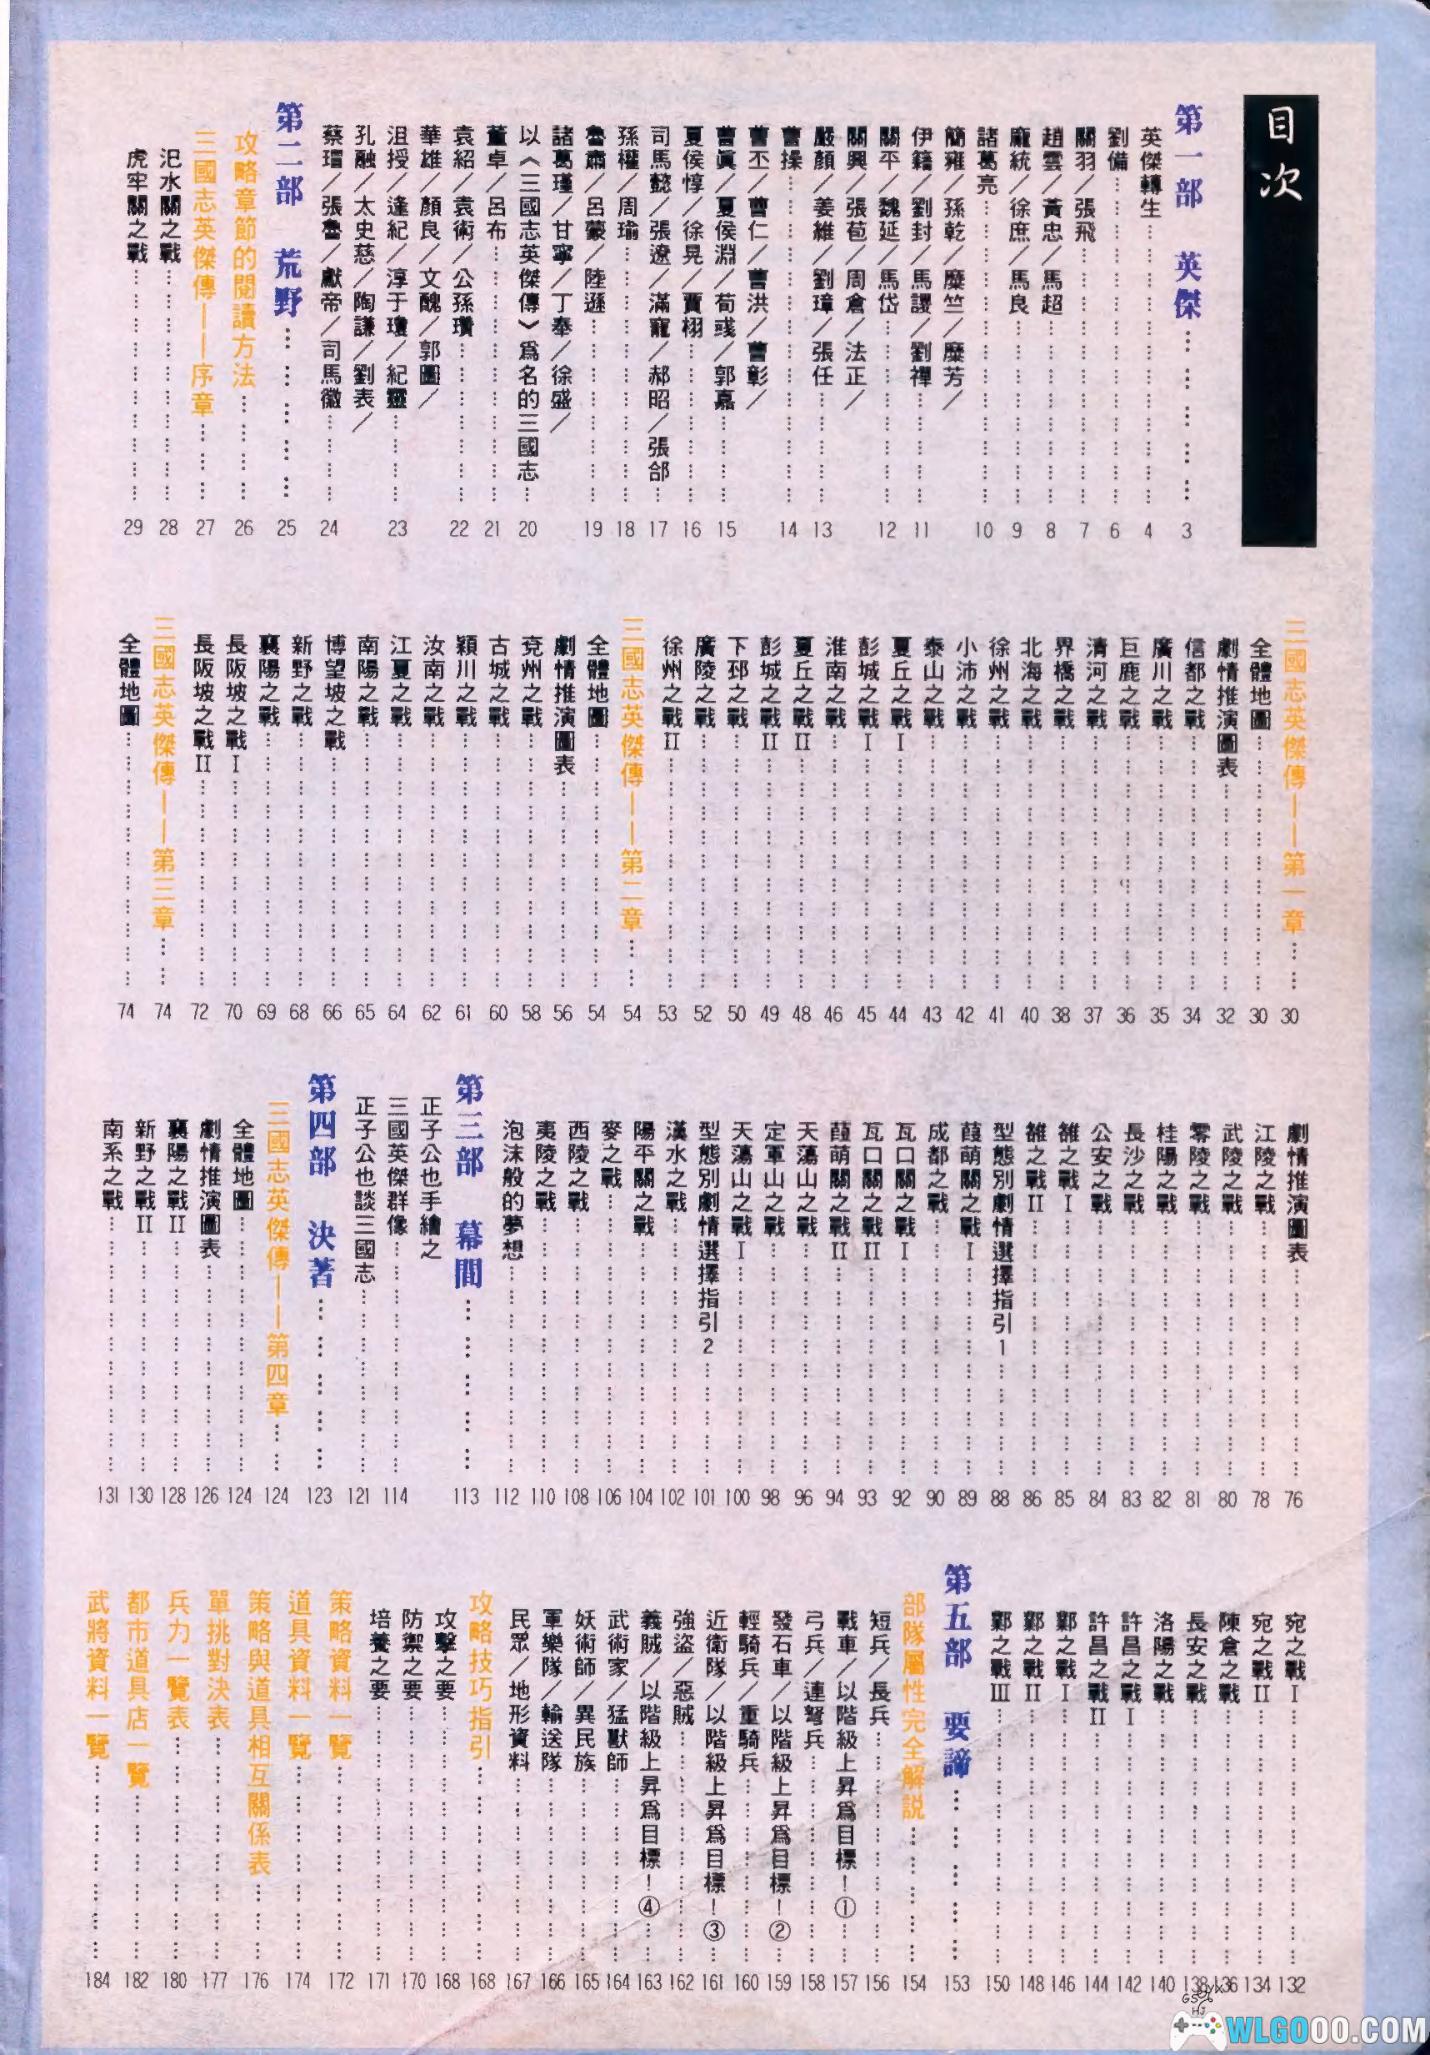 目次
第一部 英傑…………3
英傑轉生…………4
劉備…………6
關羽／張飛…………7
趙雲／黃忠／馬超…………8
龐統／徐庶／馬良…………9
諸葛亮…………10
簡雍／孫乾／糜竺／糜芳／
伊籍／劉封／馬謖／劉禪…………11
關平／魏延／馬岱…………12
關興／張苞／周倉／法正／
嚴顏／姜維／劉璋／張任…………13
曹操…………14
曹丕／曹仁／曹洪／曹彰／
曹眞／夏侯淵／荀彧／郭嘉…………15
夏侯惇／徐晃／賈栩…………16
司馬懿／張遼／滿寵／郝昭／張郃…………17
孫權／周瑜…………18
魯肅／呂蒙／陸遜…………19
諸葛瑾／甘寧／丁奉／徐盛／
以《三國志英傑傳》爲名的三國志…………20
董卓／呂布…………21
袁紹／袁術／公孫瓚…………22
華雄／顏良／文醜／郭圖／
沮授／逢紀／淳于瓊／紀靈…………23
孔融／太史慈／陶謙／劉表／
蔡瑁／張魯／獻帝／司馬徽…………24
第二部 荒野…………25
攻略章節的閱讀方法…………26
三國志英傑傳——序章…………27
汜水關之戰…………28
虎牢關之戰…………29
三國志英傑傳——第一章…………30
全體地圖…………30
劇情推演圖表…………32
信都之戰…………34
廣川之戰…………35
巨鹿之戰…………36
清河之戰…………37
界橋之戰…………38
北海之戰…………40
徐州之戰…………41
小沛之戰…………42
泰山之戰…………43
夏丘之戰I…………44
彭城之戰I…………45
淮南之戰…………46
夏丘之戰II…………48
彭城之戰II…………49
下邳之戰…………50
廣陵之戰…………52
徐州之戰II…………53
三國志英傑傳——第二章…………54
全體地圖…………54
劇情推演圖表…………56
兗州之戰…………58
古城之戰…………60
潁川之戰…………61
汝南之戰…………62
江夏之戰…………64
南陽之戰…………65
博望坡之戰…………66
新野之戰…………68
襄陽之戰…………69
長阪坡之戰I…………70
長阪坡之戰II…………72
三國志英傑傳——第三章…………74
全體地圖…………74
劇情推演圖表…………76
江陵之戰…………78
武陵之戰…………80
零陵之戰…………81
桂陽之戰…………82
長沙之戰…………83
公安之戰…………84
雒之戰I…………85
雒之戰II…………86
型態別劇情選擇指引1…………88
葭萌關之戰I…………89
成都之戰…………90
瓦口關之戰I…………92
瓦口關之戰II…………93
葭萌關之戰II…………94
天蕩山之戰…………96
定軍山之戰…………98
天蕩山之戰I…………100
型態別劇情選擇指引2…………101
漢水之戰…………102
陽平關之戰…………104
麥之戰…………106
西陵之戰…………108
夷陵之戰…………110
泡沫般的夢想…………112
第三部 幕間…………113
正子公也手繪之
三國英傑群像…………114
正子公也談三國志…………121
第四部 決著…………123
三國志英傑傳——第四章…………124
全體地圖…………124
劇情推演圖表…………126
襄陽之戰II…………128
新野之戰II…………130
南系之戰…………131
宛之戰I…………132
宛之戰II…………134
陳倉之戰…………136
長安之戰…………138
洛陽之戰…………140
許昌之戰I…………142
許昌之戰II…………144
鄴之戰I…………146
鄴之戰II…………148
鄴之戰III…………150
第五部 要諦…………153
部隊屬性完全解説…………154
短兵／長兵…………156
戰車／以階級上昇爲目標！①…………157
弓兵／連弩兵…………158
發石車／以階級上昇爲目標！②…………159
輕騎兵／重騎兵…………160
近衛隊／以階級上昇爲目標！③…………161
強盜／惡賊…………162
義賊／以階級上昇爲目標！④…………163
武術家／猛獸師…………164
妖術師／異民族…………165
軍樂隊／輸送隊…………166
民眾／地形資料…………167
攻略技巧指引…………168
攻擊之要…………168
防禦之要…………170
培養之要…………171
策略資料一覽…………172
道具資料一覽…………174
策略與道具相互關係表…………176
單挑對決表…………177
兵力一覽表…………180
都市道具店一覽…………182
武將資料一覽…………184
WLGOOO.COM